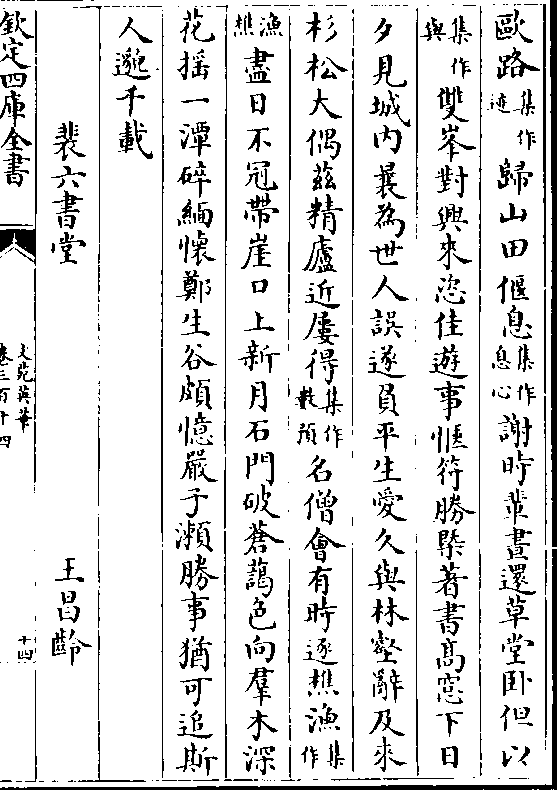 歐路集作迹歸山田偃息集作息心謝時輩晝還草堂卧但以
集作與雙峯對興來恣佳遊事愜符勝槩著書髙窓下日
夕見城内曩為世人誤遂負平生愛久與林壑辭及來
杉松大偶兹精廬近屢得集作數預名僧會有時逐樵漁集作
漁樵盡日不冠帶崖口上新月石門破蒼藹色向羣木深
花揺一潭碎緬懷鄭生谷頗憶嚴子瀬勝事猶可追斯
人邈千載
裴六書堂 王昌齡
欽定四庫全書
文苑英華
卷三百十四
十四